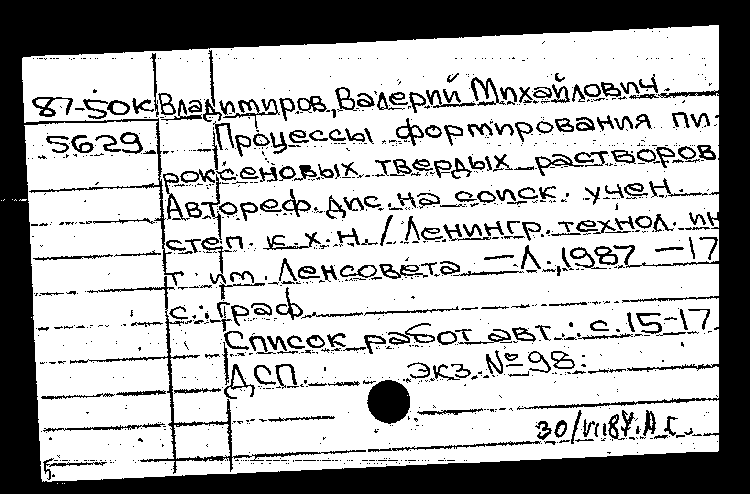 87-50к Владимиров, Валерий Михайлович.
5629 Процессы формирования пи-
роксеновых твердых растворов.
Автореф. дис. на соиск. учен.
степ. к. х. н. / Ленингр. технол. ин-
т им. Ленсовета. — Л., 1987. — 17
с.: граф.
Список работ авт.: с. 15-17
ДСП. Экз. № 98.